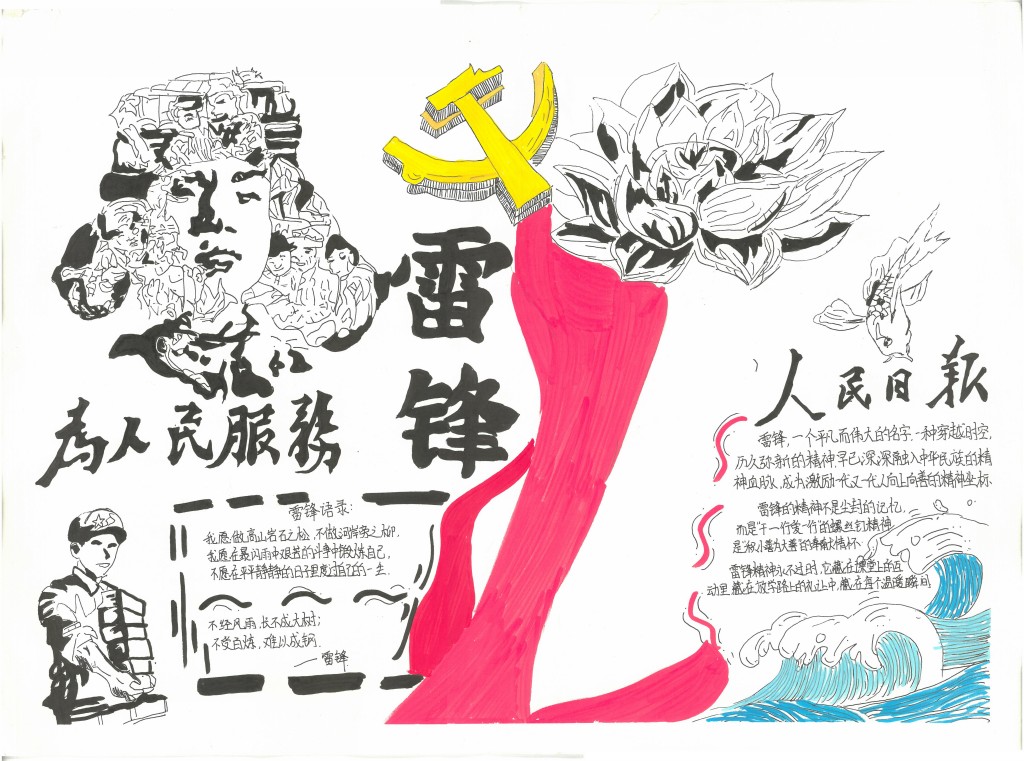 雷
锋
為人民服務
雷锋语录:
我愿做高山岩石之松,不做河岸旁之柳.
我愿在暴风雨中艰苦的斗争中锻炼自己,
不愿在平平静静的日子里度过自己的一生.
不经风雨,长不成大树;
不受百炼,难以成钢.
——雷锋
人民日报
雷锋,一个平凡而伟大的名字,一种穿越时空,
历久弥新的精神,早已深深融入中华民族的精
神血脉,成为激励一代又一代人向上向善的精神坐标.
雷锋的精神不是尘封的记忆,
而是"干一行爱一行"的螺丝钉精神
是"积小善为大善"的奉献情怀.
雷锋精神永不过时,它藏在课堂上的互
动里,藏在放学路上的礼让中,藏在每个温暖瞬间